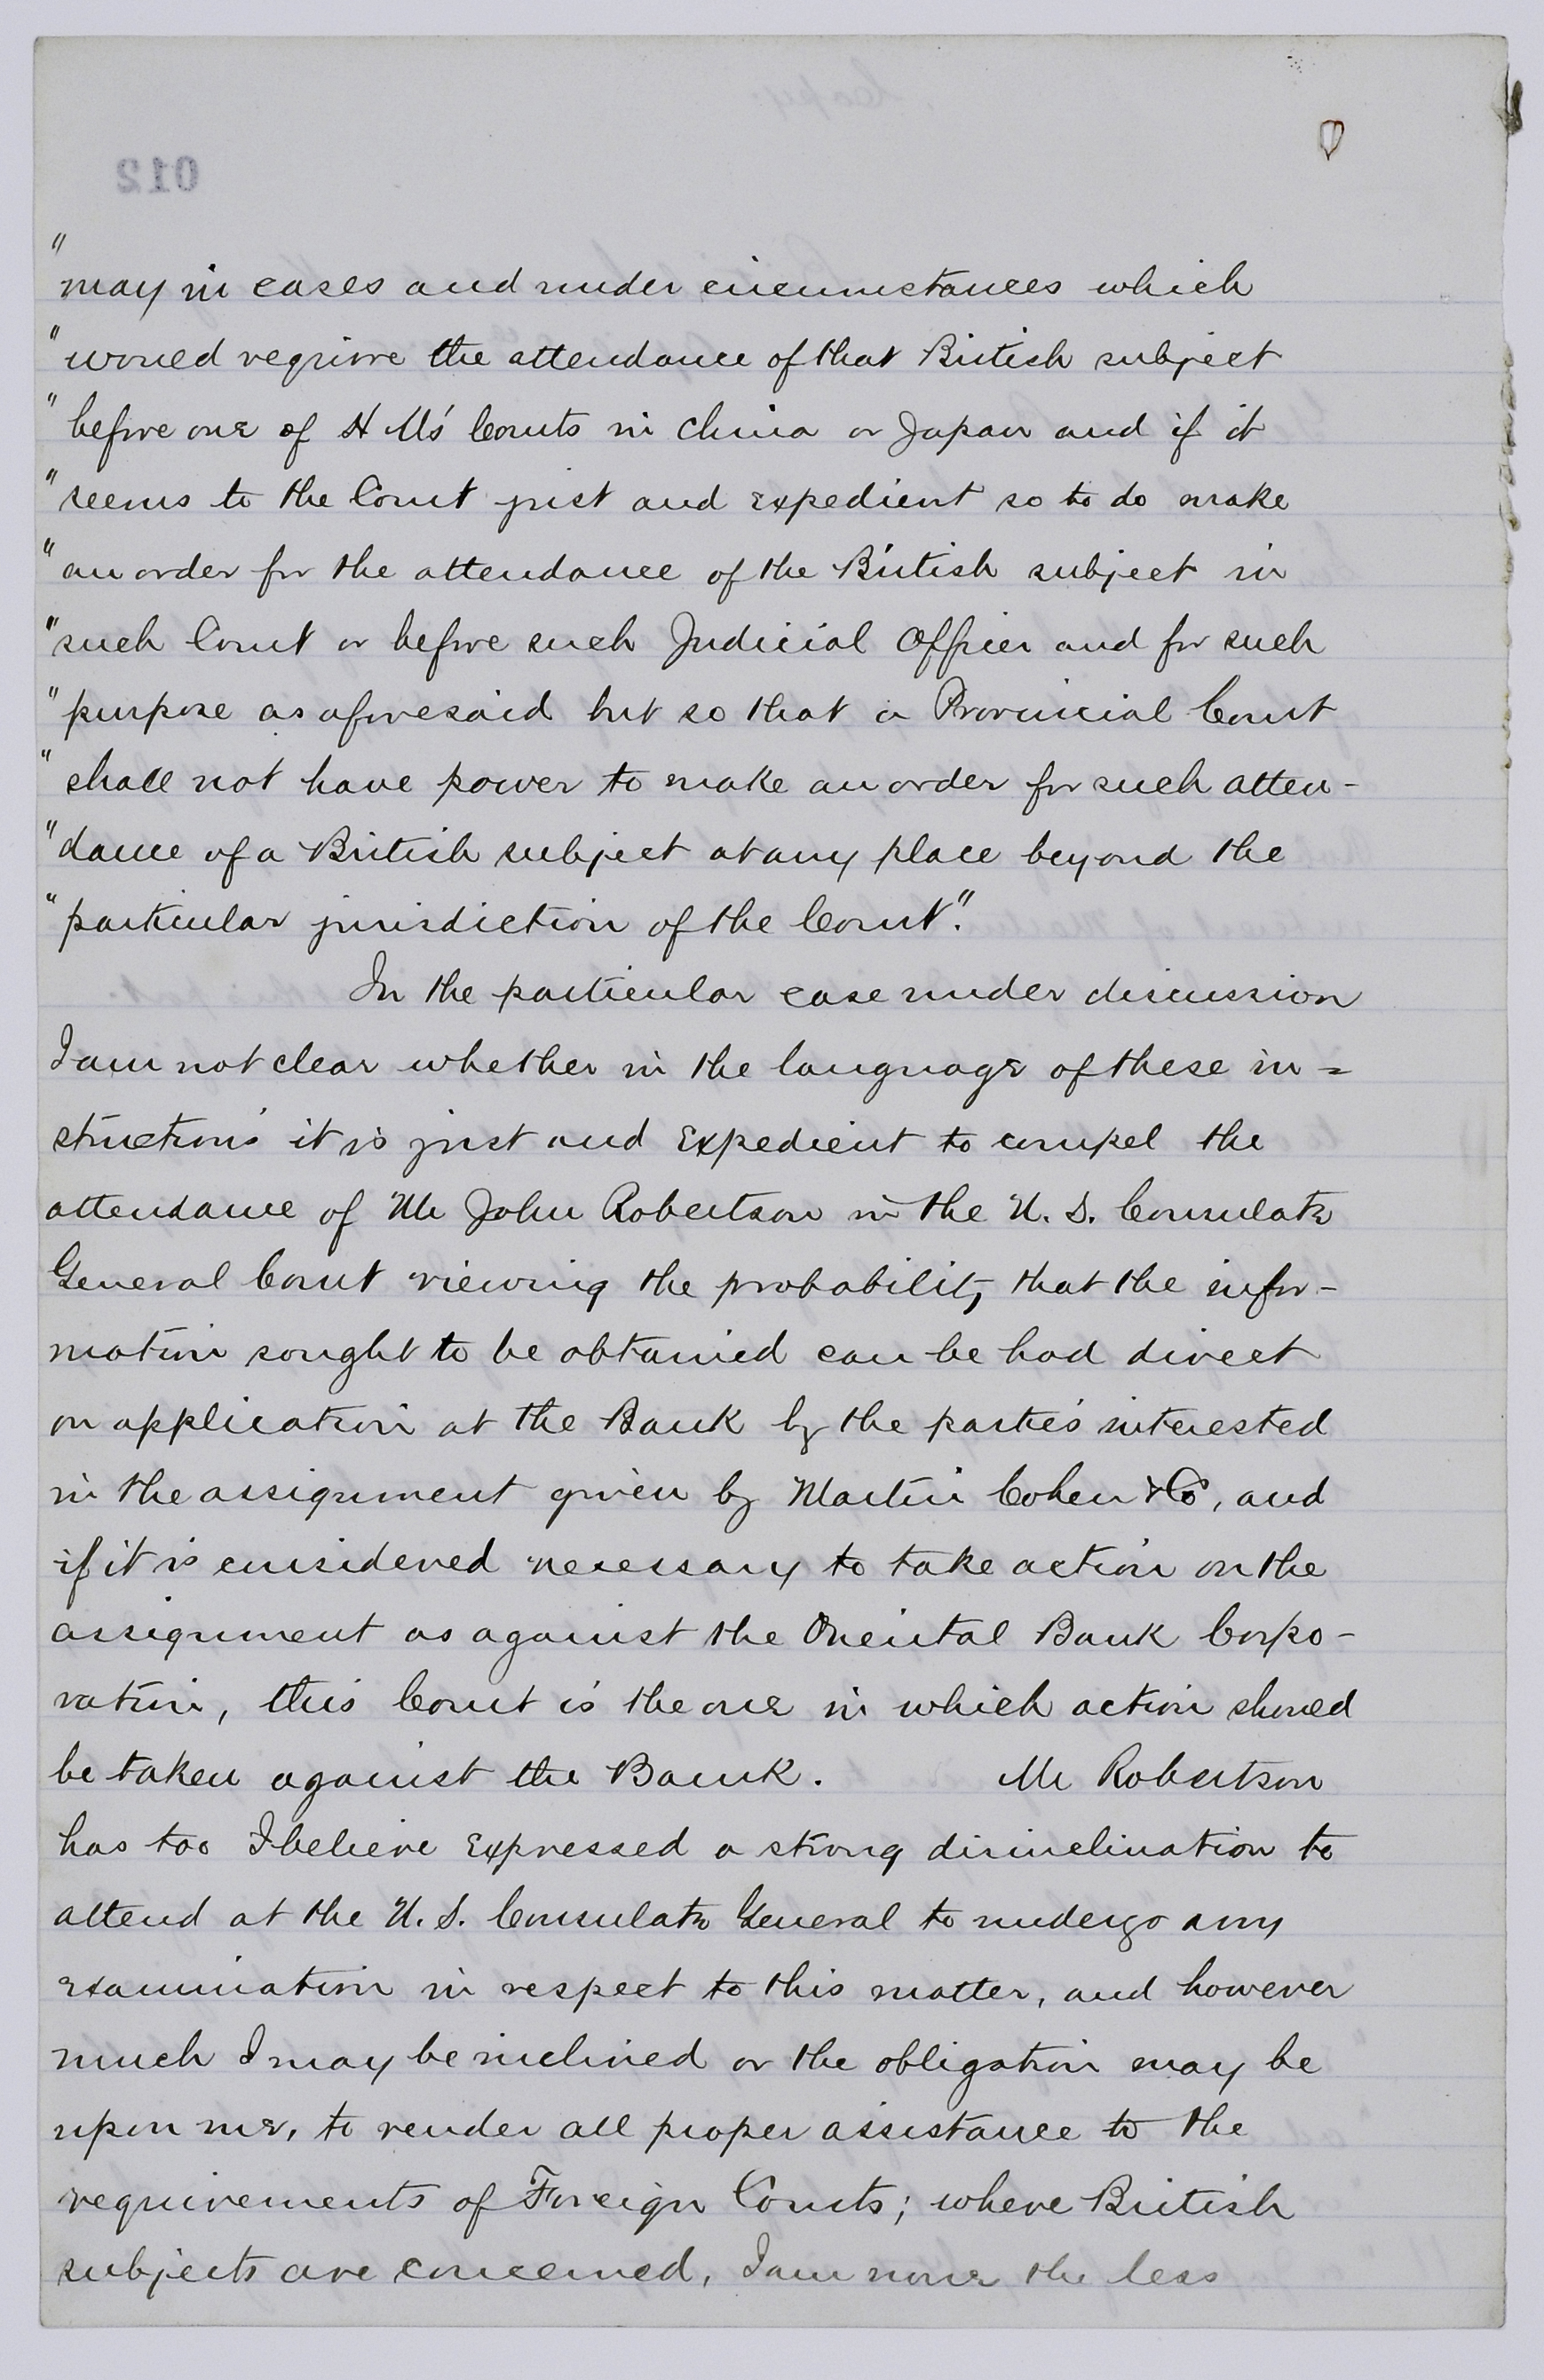 "may in cases and under circumstances which
"would require the attendance of that British subject
"before one of H Ms' Courts in China or Japan and if it
"seems to the Court just and expedient so to do make
"an order for the attendance of the British subject in
"such Court or before such Judicial Officer and for such
"purpose as aforesaid but so that a Provincial Court
"shall not have power to make an order for such atten-
"dance of a British subject at any place beyond the
"particular jurisdiction of the Court".
In the particular case under discussion
I am not clear whether in the language of these in=
structions it is just and expedient to compel the
attendance of Mr John Robertson in the U. S. Consulate
General Court viewing the probability that the infor-
mation sought to be obtained can be had direct
on application at the Bank by the parties interested
in the assignment given by Martin Cohen & Co, and
if it is considered necessary to take action on the
assignment as against the Oriental Bank Corpo-
ration, this Court is the one in which action should
be taken against the Bank. Mr Robertson
has too I believe expressed a strong disinclination to
attend at the U. S. Consulate General to undergo any
examination in respect to this matter, and however
much I may be inclined or the obligation may be
upon me, to render all proper assistance to the
requirements of Foreign Courts; where British
subjects are concerned, I am none the less